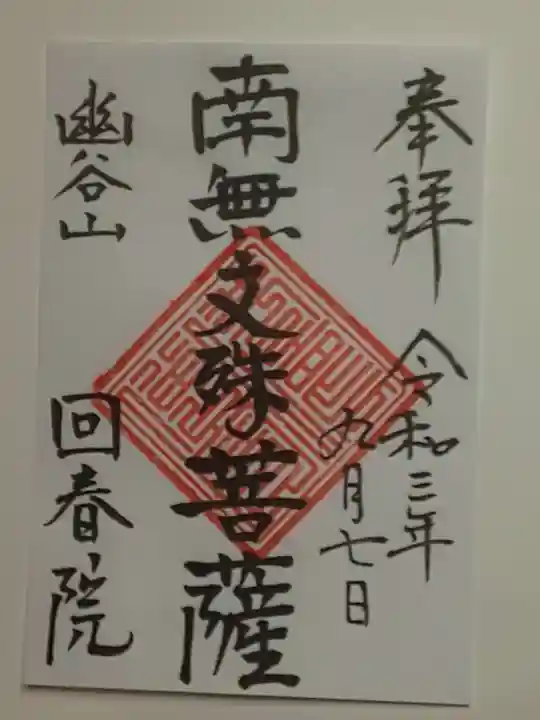 奉拝
令和三年
九月七日
南無文殊菩薩
幽谷山
回春院